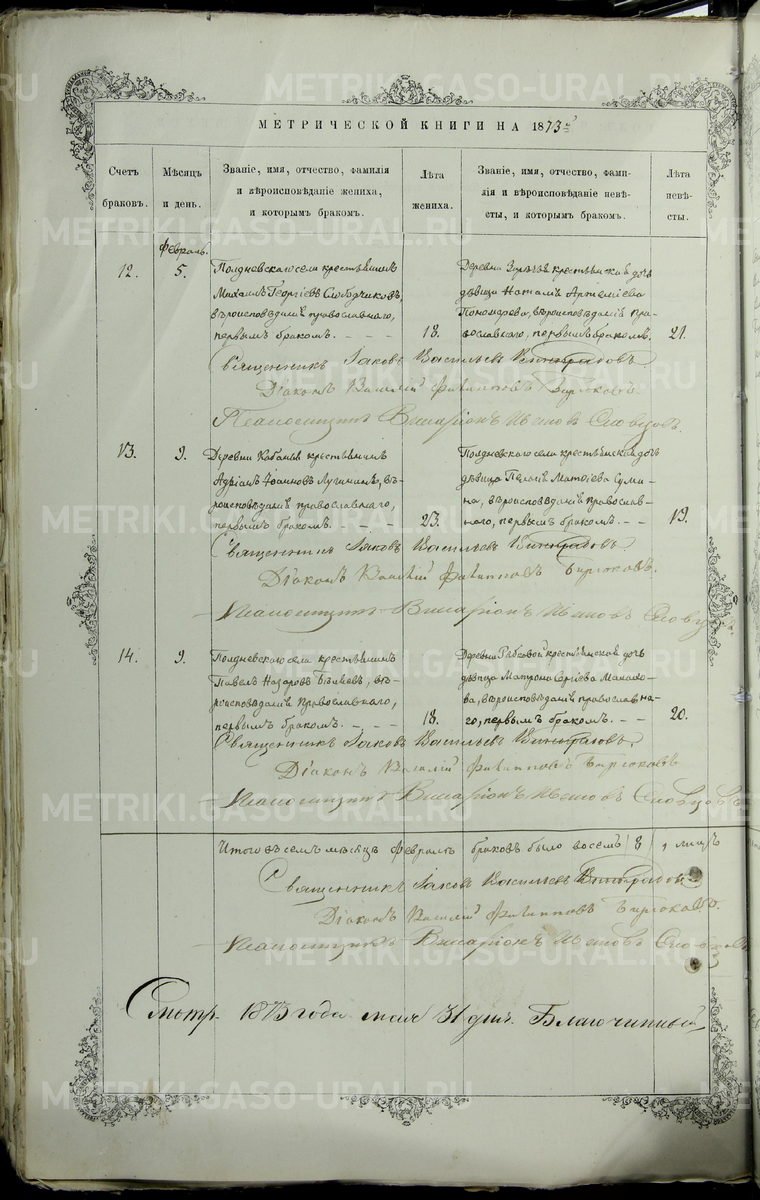 МЕТРИЧЕСКОЙ КНИГИ НА 1873
Счетъ
браковъ.
Мѣсяцъ
и день.
Званіе, имя, отчество, фамилія
и вѣроисповѣданіе жениха,
и которымъ бракомъ.
Лѣта
жениха.
Званіе, имя, отчество, фами-
лія и вѣроисповѣданіе невѣ-
сты, и которымъ бракомъ.
Лѣта
невѣ-
сты.
Февраль.
12.
5.
Полдневскаго села крестьянинъ
Михаилъ Георгіевъ Слободчиковъ,
вѣроисповѣданія православнаго,
первымъ бракомъ. - - -
18.
крестьянская дочь
дѣвица Наталія Артеміева
Пономарева, вѣроисповѣданія пра-
вославнаго, первымъ бракомъ.
21.
Священникъ Іаковъ Васильевъ Виноградовъ.
Діаконъ Василій Филипповъ Бирюковъ.
Псаломщикъ Виссаріонъ Ивановъ Словцовъ.
13.
9.
Деревни крестьянинъ
Адріанъ Іоанновъ Лугининъ, вѣ-
роисповѣданія православнаго,
первымъ бракомъ. - - -
23.
Полдневскаго села крестьянская дочь
дѣвица Пелагія Матѳіева Суми-
на, вѣроисповѣданія православ-
наго, первымъ бракомъ. - -
19.
Священникъ Іаковъ Васильевъ Виноградовъ.
Діаконъ Василій Филипповъ Бирюковъ.
Псаломщикъ Виссаріонъ Ивановъ Словцовъ.
14.
9.
Полдневскаго села крестьянинъ
Павелъ Назаровъ вѣ-
роисповѣданія православнаго,
первымъ бракомъ. - - -
18.
Деревни крестьянская дочь
дѣвица Матрона Сергіева
вѣроисповѣданія православна-
го, первымъ бракомъ. - -
20.
Священникъ Іаковъ Васильевъ Виноградовъ.
Діаконъ Василій Филипповъ Бирюковъ
Псаломщикъ Виссаріонъ Ивановъ Словцовъ
Итого въ семъ мѣсяцѣ Февралѣ браковъ было восемь (8)
Священникъ Іаковъ Васильевъ Виноградовъ
Діаконъ Василій Филипповъ Бирюковъ.
Псаломщикъ Виссаріонъ Ивановъ Словцовъ
Смотр. 1873 года мая 31 дня. Благочинный
METRIKI.GASO-URAL.RU